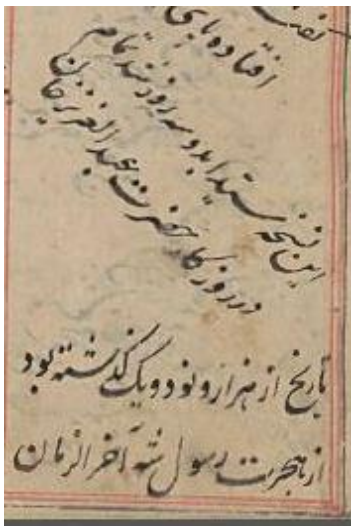 افتاده
این نسخه سیدا بدو سه روز شد تمام
در روزگار حضرت عبدالعزیز خان
تاریخ از هزار و نود و یک گذشته بود
از هجرت رسول شه آخر الزمان